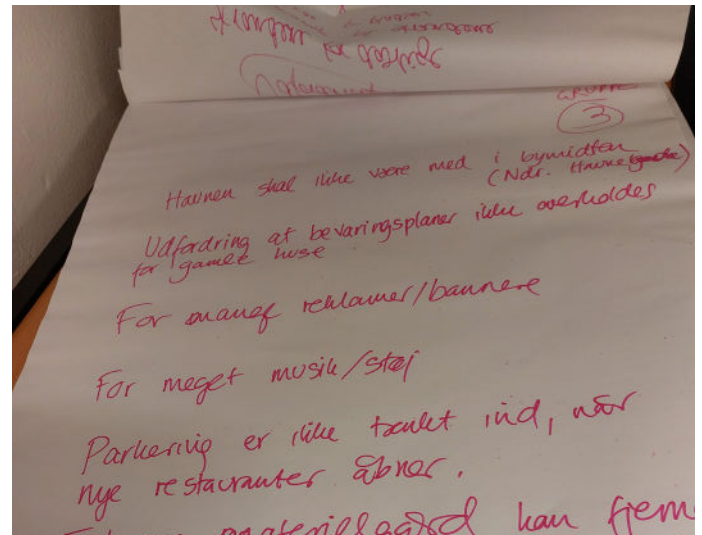 GRUPPE
3
Havnen skal ikke være med i bymidten
(Ndr. Havne
Udfordring at bevaringsplaner ikke overholdes
for gamle huse
For mange reklamer/bannere
For meget musik/støj
Parkering er ikke tænkt ind, når
nye restauranter åbner.
materielgård kan fjern